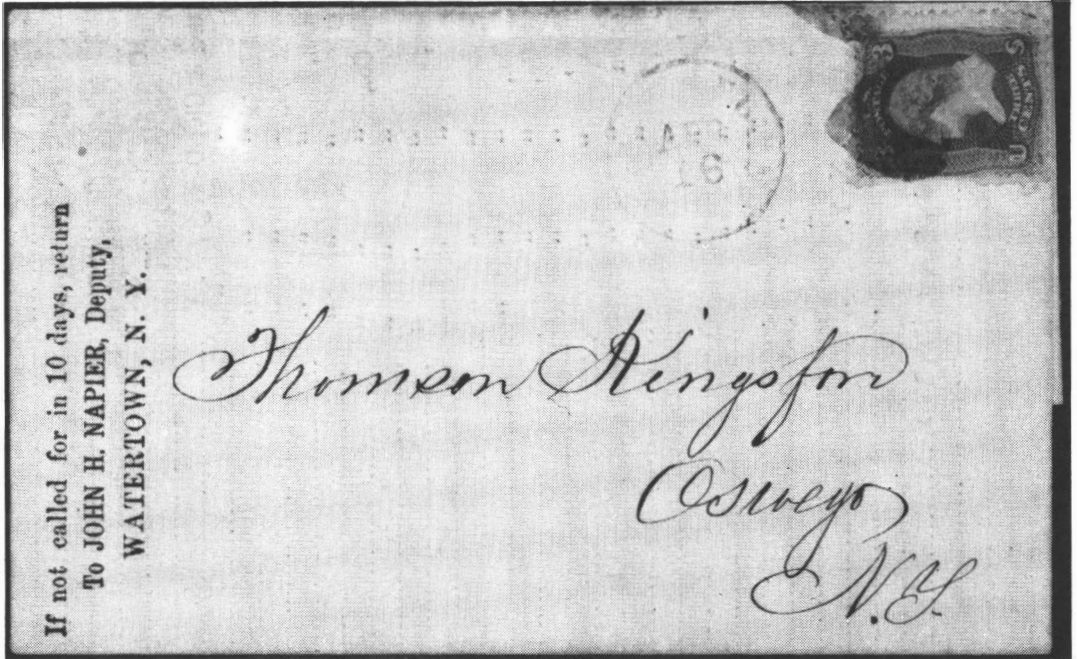 If not called for in 10 days, return
To JOHN H. NAPIER, Deputy,
WATERTOWN, N. Y.
6
Thomson Kingsford
Oswego
N.Y.